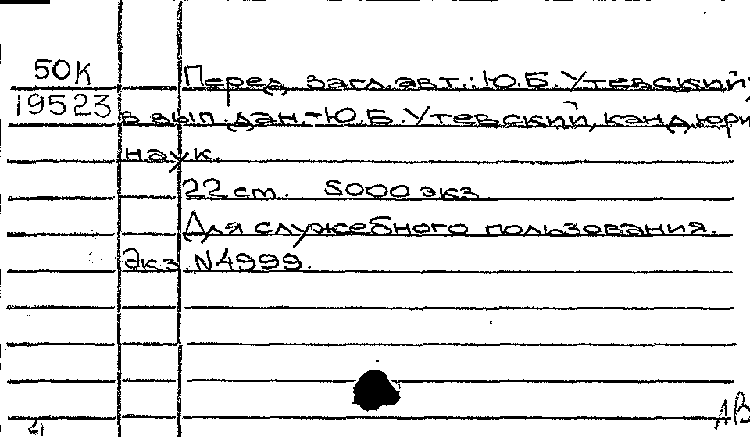 50К
19523
Перед загл.авт.: Ю.Б.Утевский,
в вып.дан.-Ю.Б.Утевский, канд.юри
наук.
22 cm. 5000 экз
Для служебного пользования.
Экз.N4999.
АВ